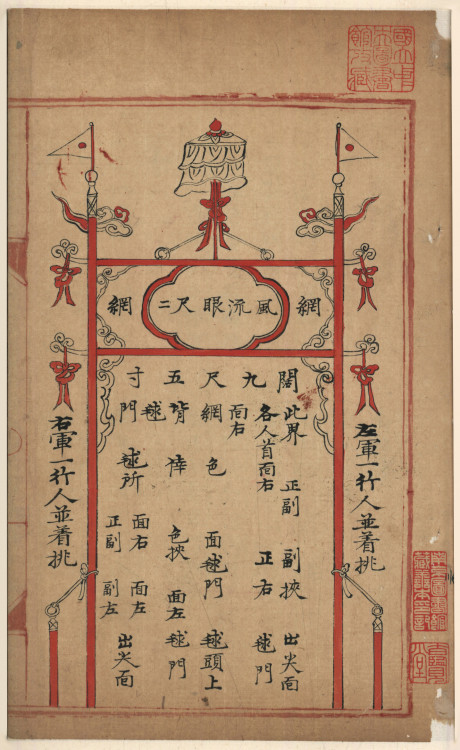 國立中
央圖書
館收藏
網
風流眼尺二
網
左軍一行人並着挑
闊
此界
正副
副挾
出尖面
九
各人首面右
面右
正右
毬門
尺
網
色
面毬門
毬頭上
五
背
倖
色挾
面左
毬門
毬
寸
門
毬所
面右
面左
正副
副左
出尖面
右軍一行人並着挑